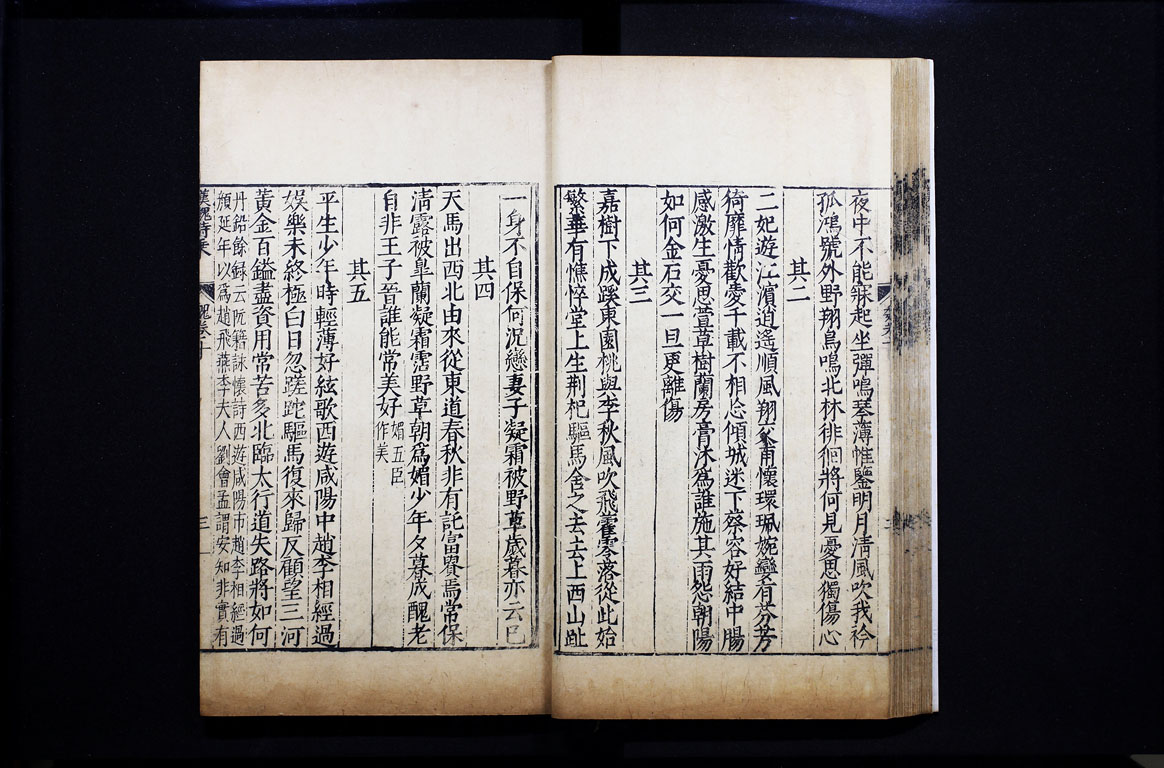 夜中不能寐起坐彈鳴琴薄帷鑒明月清風吹我衿
孤鴻號外野翔鳥鳴北林徘徊將何見憂思獨傷心
其二
二妃遊江濱逍遙順風翔交甫懷環珮婉孌有芬芳
猗靡情歡愛千載不相忘傾城迷下蔡容好結中腸
感激生憂思萱草樹蘭房膏沐爲誰施其雨怨朝陽
如何金石交一旦更離傷
其三
嘉樹下成蹊東園桃與李秋風吹飛藿零落從此始
繁華有憔悴堂上生荆杞驅馬舍之去去上西山趾
一身不自保何況戀妻子凝霜被野草歲暮亦云已
其四
天馬出西北由來從東道春秋非有託富貴焉常保
清露被皐蘭凝霜霑野草朝爲媚少年夕暮成醜老
自非王子晉誰能常美好
媚五臣
作美
其五
平生少年時輕薄好絃歌西遊咸陽中趙李相經過
娛樂未終極白日忽蹉跎驅馬復來歸反顧望三河
黃金百鎰盡資用常苦多北臨太行道失路將如何
丹鉛餘錄云阮籍詠懷詩西遊咸陽市趙李相經過
顏延年以爲趙飛燕李夫人劉會孟謂安知非實有
漢魏詩乘
魏卷十
三